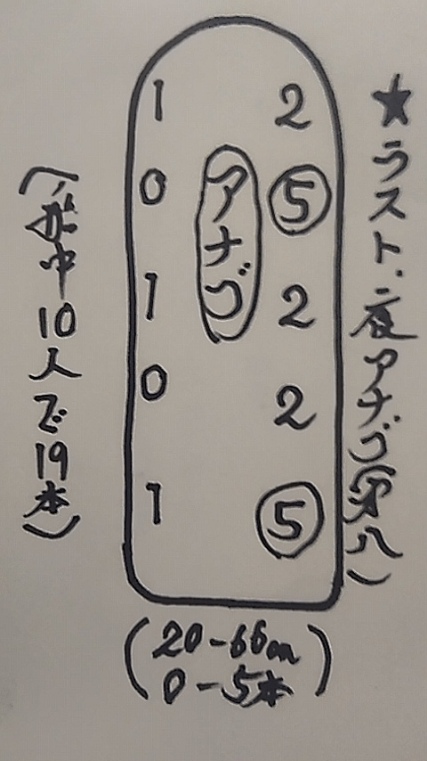 ★ラスト、夜アナゴ
1 2
0 ⑤
アナゴ
1 2
0 2
1 ⑤
(船中10人で19本)
(20-66cm
0-5本)